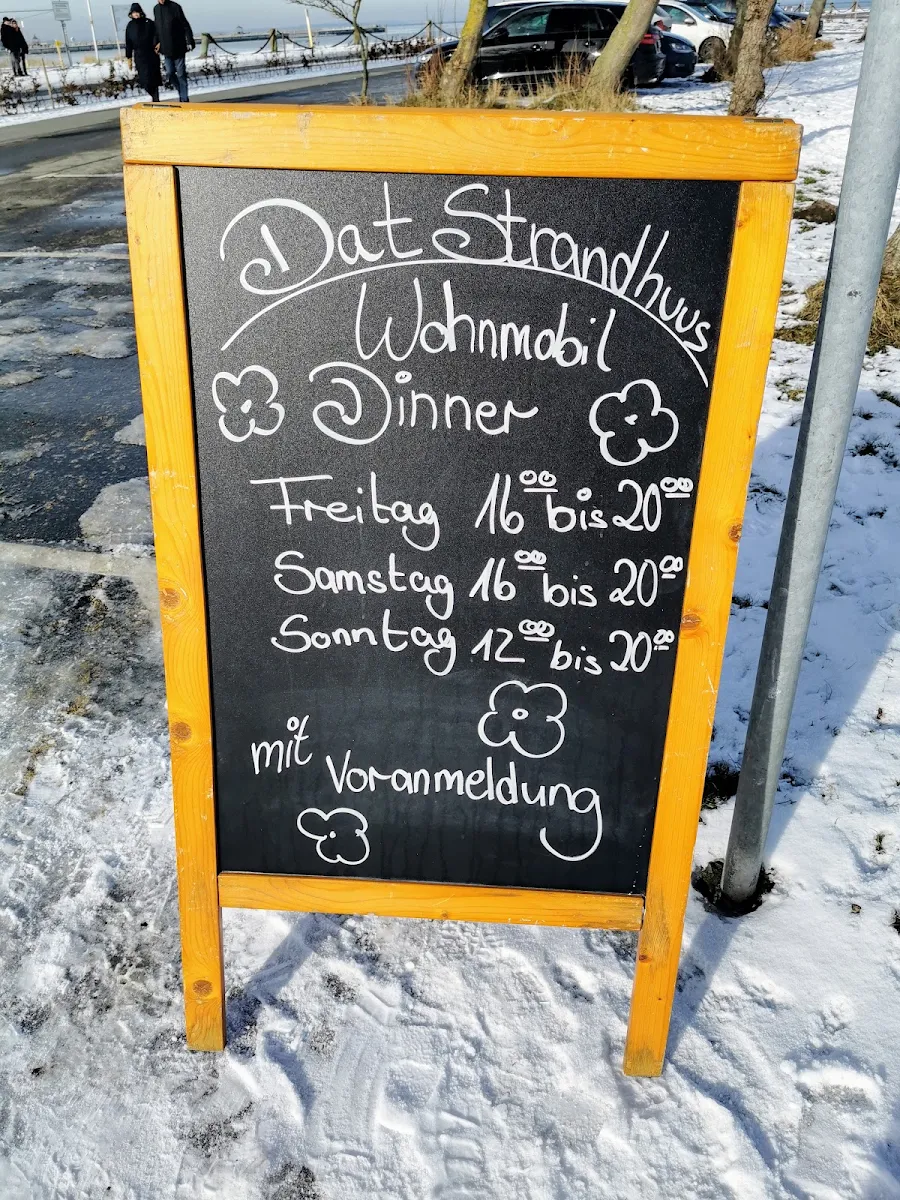 Dat Strandhuus
Wohnmobil
Dinner
Freitag 16⁰⁰ bis 20⁰⁰
Samstag 16⁰⁰ bis 20⁰⁰
Sonntag 12⁰⁰ bis 20⁰⁰
mit Voranmeldung